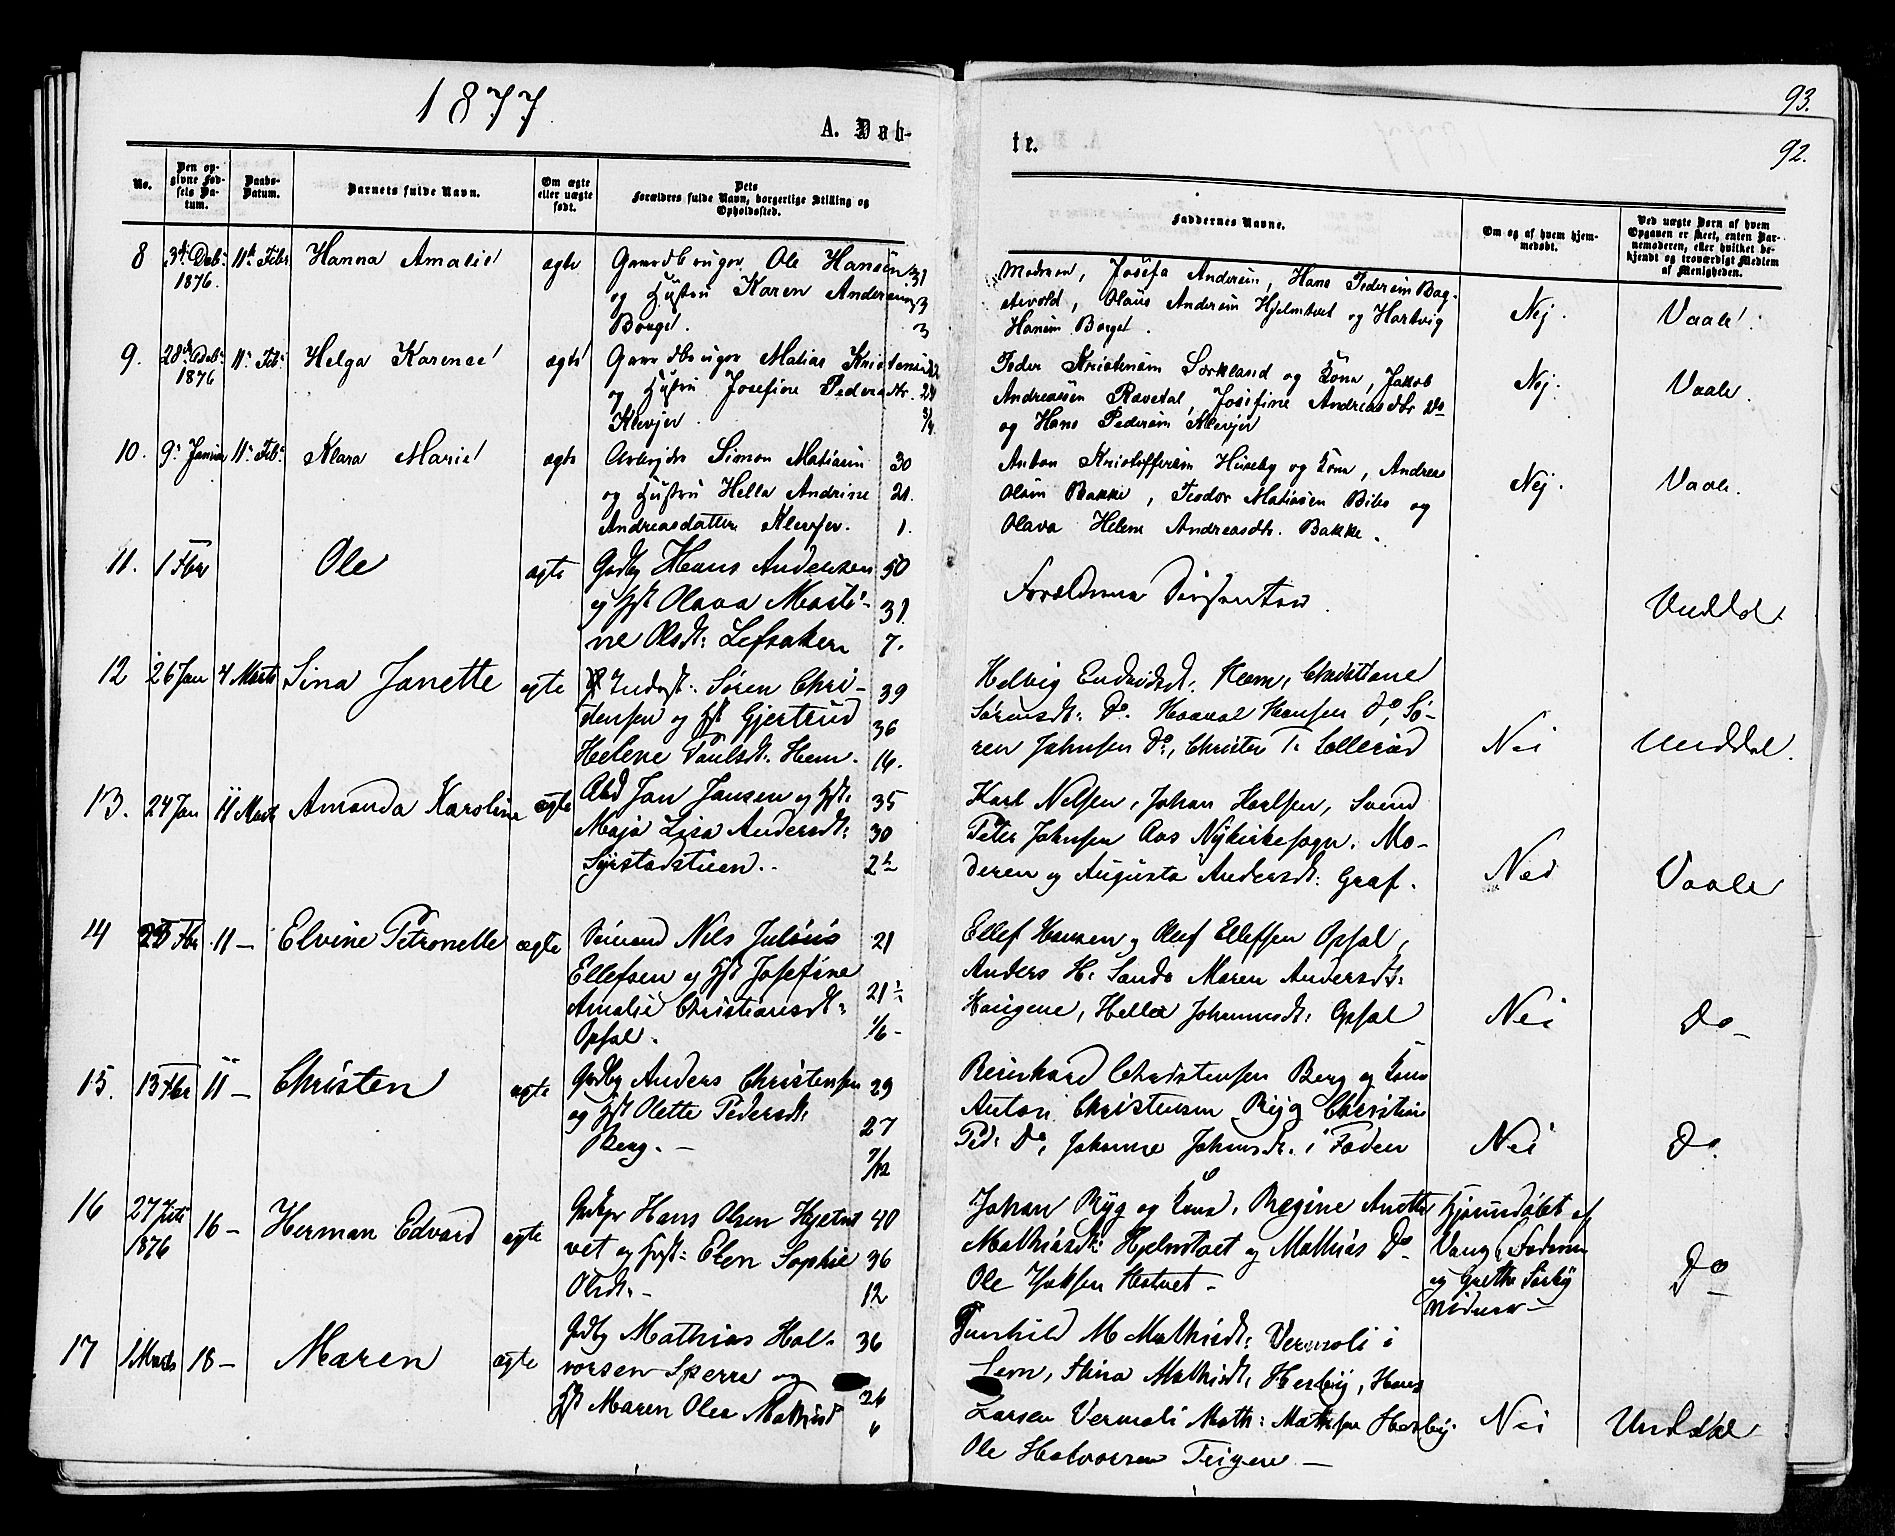 1877.
A. Døb-
te.
93.
92.
No.
Den op-
givne Fød-
sels Da-
tum.
Daabs-
Datum.
Barnets fulde Navn.
Om ægte
eller uægte
født.
Dets
Forældres fulde Navn, borgerlige Stilling og
Opholdssted.
Faddernes Navne.
Om og af hvem hjem-
medøbt.
Ved uægte Børn af hvem
Opgaven er skeet, enten Bar-
nemoderen, eller hvilket be-
kjendt og troværdigt Medlem
af Menigheden.
8 3die Dcb. 11te Febr Hanna Amalie ægte Gaardbruger Ole Hansen 31
1876. og Hustru Karen Anders
Borget. 3
Moderen, Josefa Andersen, Hans Pedersen Bag-
Olaus Andersen Hjelmtvet og Hartvig
Hansen Borget.
Nej. Vaale.
9. 28de Dcb. 11te Feb. Helga Karense ægte Gaardbruger Matias Kristensen
1876 og Hustru Josefine Pedersdtr. 24
Klevjer. 3/4
Peder Kristensen Sørkland og Kone, Jakob
Andreassen Ravedal, Josefine Andreasdtr Do
og Hans Pedersen Klevjer
Nej. Vaale.
10. 9de Januar 11te Feb. Klara Marie ægte Arbejder Simon Matiasen 30
og Hustru Hella Andrine 21.
Andreasdatter Klevjer. 1.
Anton Kristoffersen Huseby og Kone, Andreas
Olsen Bakke, Teodor Matiasen Bibo og
Olava Helene Andreasdtr. Bakke.
Nej. Vaale.
11. 1 Fbr Ole ægte Gdbg Hans Andersen 50
og Hst Olava Marti- 31
ne Olsdt: Lefsaker 7.
Forældrene
Unddal.
12 26 Jan 4 Marts Sina Janette egte Indst: Søren Chri- 39
stensen og Hst Gjertrud 36
Helene Paulsdt: Hem. 16.
Helvig Endridsdt: Hem, Christiane
Sørensdt: Do. Haaval Hansen Do, Sø-
ren Johnsen Do, Christen T. Sollerød
Nei Unddal.
13. 24 Jan 11 Marts Amanda Karoline ægte Arbd Jan Jansen og Hst: 35
Maja Lisa Andersdt: 30
Syrstadstuen. 2½
Karl Nelsen, Johan Karlsen, Svend
Peter Johnsen Aas Nykirkesogn. Mo-
deren og Augusta Andersdt: Graf.
Nei Vaale
14 Fbr 11 – Elvine Petronelle ægte Sømand Nils Julius 21
Ellefsen og Hst Josefine
Amalie Christiansdt: 21½
Opsal. 1/6 –
Ellef Hansen og Oluf Ellefsen Opsal,
Anders H. Sande Maren Andersdt:
Haugene, Hella Johannesdt: Opsal
Nei Do –
15. 13 Fbr 11 – Christen ægte Gdbg Anders Christensen 29
og Hst Olette Pedersdt: 27
Berg. – 7/12
Reinhard Christensen Berg og Kone
Anton Christensen Ryg Christian
Ped: Do, Johanne Johnsdt: i Foden
Nei Do.
16 27 Juli 16 – Herman Edvard ægte Hans Olsen Hjelmt 40
1876 vet og Hust: Elen Sophie 36
Olsdt: – 12
Johan Ryg og Kone, Regine Anette
Mathiasdt: Hjelmtvet og Mathias Do
Ole Jakobsen Hotvet –
Hjemmdøbt af
Vaug
og Grethe Sørby
Do
17 1 Marts 18 – Maren ægte Gdbg Mathias Hal- 36
vorsen Sperre og 26
Hst Maren Olea Mathisd 6
Gunhild M Mathisdt: Vermeli i
Sem, Stina Mathisdt: Hesby, Hans
Larsen Vermeli Math: Mathisen Hesby
Ole Halvorsen Teigen –
Nei Unddal